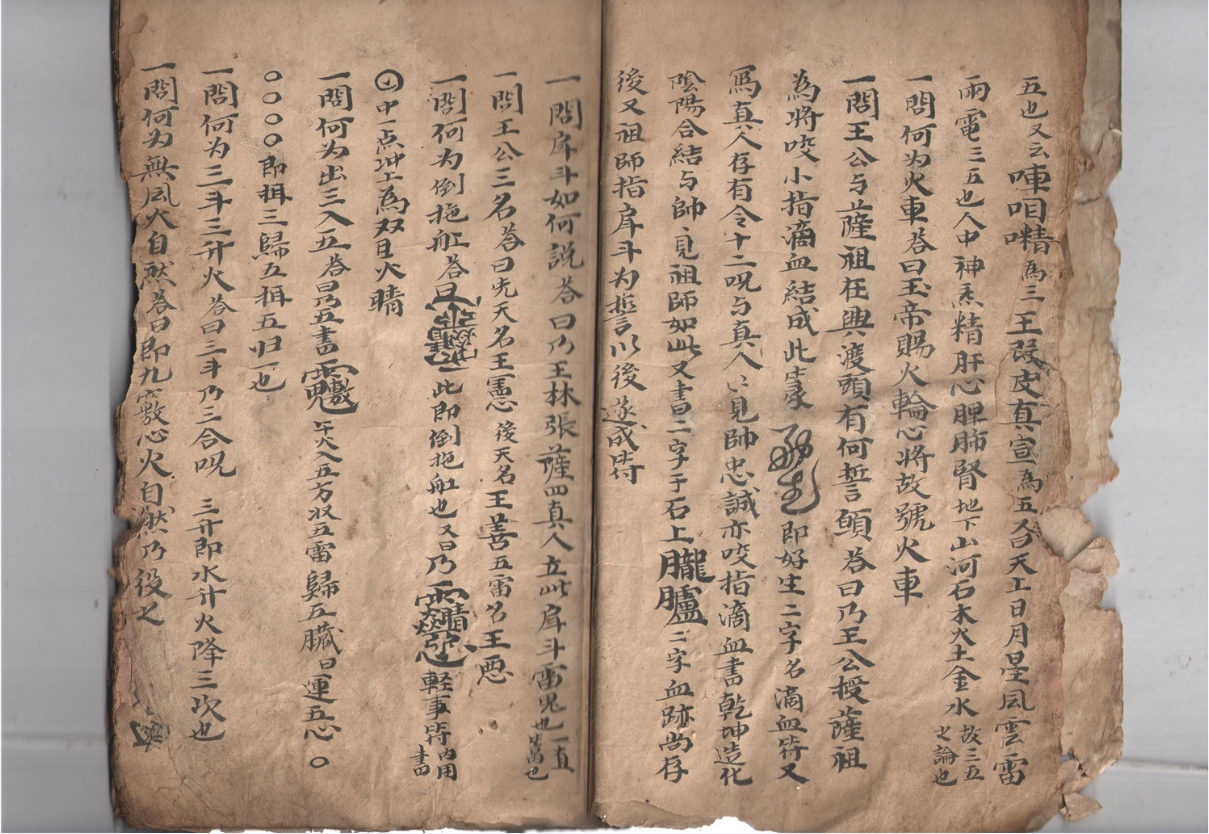 五也又云𠻘咱精為三王段皮真宣為五人曰天上日月星風雲雷
雨電三五也人中神炁精肝心脾肺腎地下山河石木火土金水故三五之論也
一問何为火車荅曰玉帝賜火輪心將故號火車
一問王公与薩祖在興渡頭有何誓願荅曰乃王公授薩祖
為將咬小指滴血結成此諱即好生二字名滴血符又
爲真人存有令十二呪与真人真人見帥忠誠亦咬指滴血書乾坤造化
陰陽合結与帥見祖師如此又書二字于石上朧臚二字血跡尚存
後又祖師指戽斗为誓以後遂成符
一問戽斗如何説荅曰乃王林張薩四真人立此戽斗雷鬼也一直
一問王公三名荅曰先天名王憲後天名王善五雷名王惡
一問何为倒拖船荅曰此即倒拖船也又曰乃軽事符內用書
中一点冲上為双日火睛
一問何为出三入五荅曰乃五書午火入五方収五雷歸五臟曰運五心〇
〇〇〇〇即揖三歸五揖五归一也
一問何为三斗三升火荅曰三斗乃三合呪三升即水升火降三次也
一問何为無風火自然荅曰即九竅心火自然乃役之